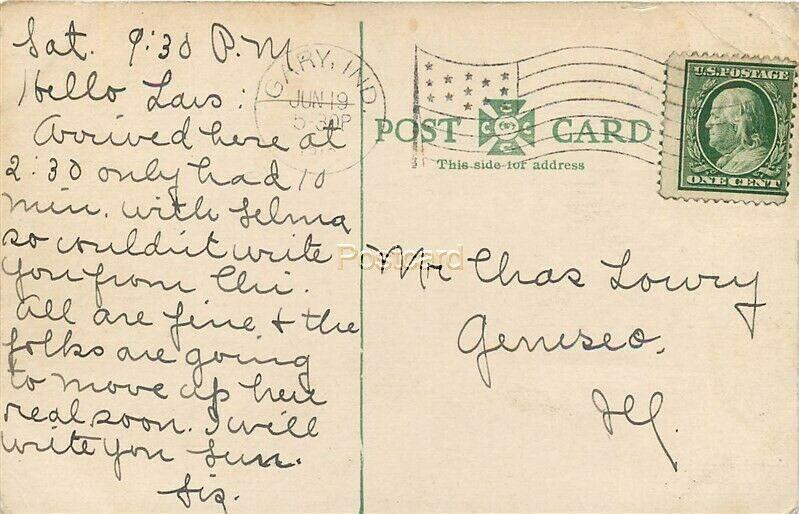 Sat. 9:30 P.M
Hello Laws:
Arrived here at
2:30 only had 10
min. with Selma
so couldn't write
you from Chi.
All are fine & the
folks are going
to move up here
real soon. I will
write you Sun.
Sis.
GARY, IND
JUN 19
5-30P
POST CARD
This side for address
U.S. POSTAGE
ONE CENT
Postcard
Mr Chas Lowry
Geneseo,
Ill.